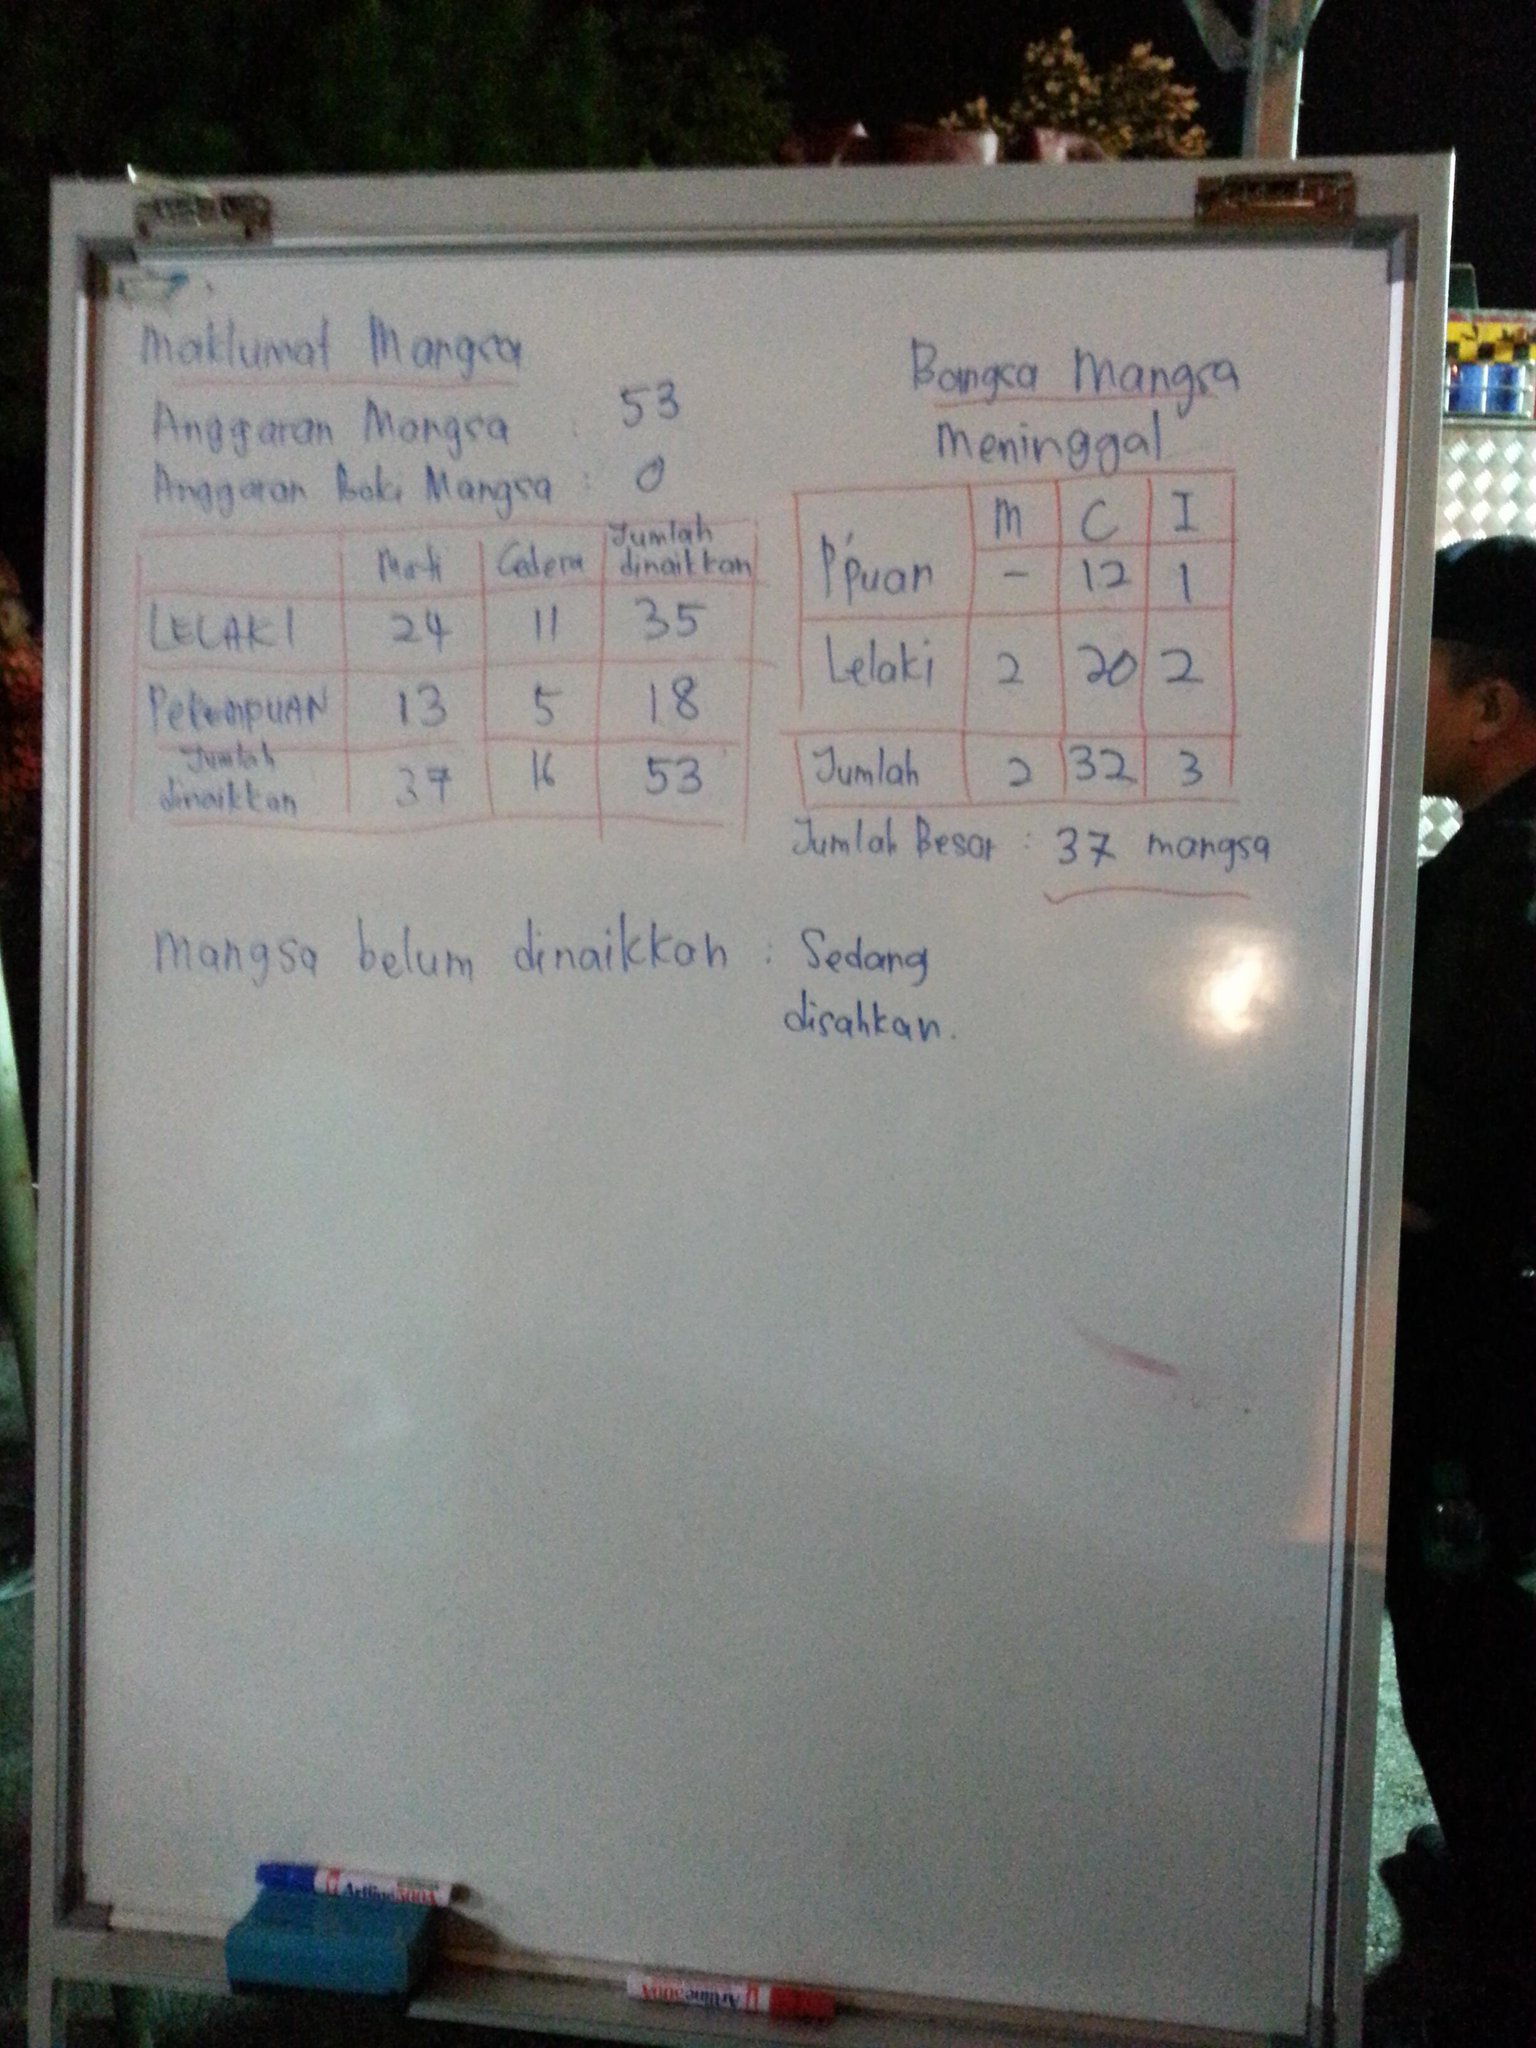 Maklumat Mangsa
Anggaran Mangsa : 53
Anggaran Baki Mangsa : 0
Mati Cedera Jumlah dinaikkan
LELAKI 24 11 35
PEREMPUAN 13 5 18
Jumlah dinaikkan 37 16 53
Bangsa Mangsa
Meninggal
M C I
P'puan - 12 1
Lelaki 2 20 2
Jumlah 2 32 3
Jumlah Besar : 37 mangsa
Mangsa belum dinaikkan : Sedang
disahkan.
Artline 500A
Artline 500A